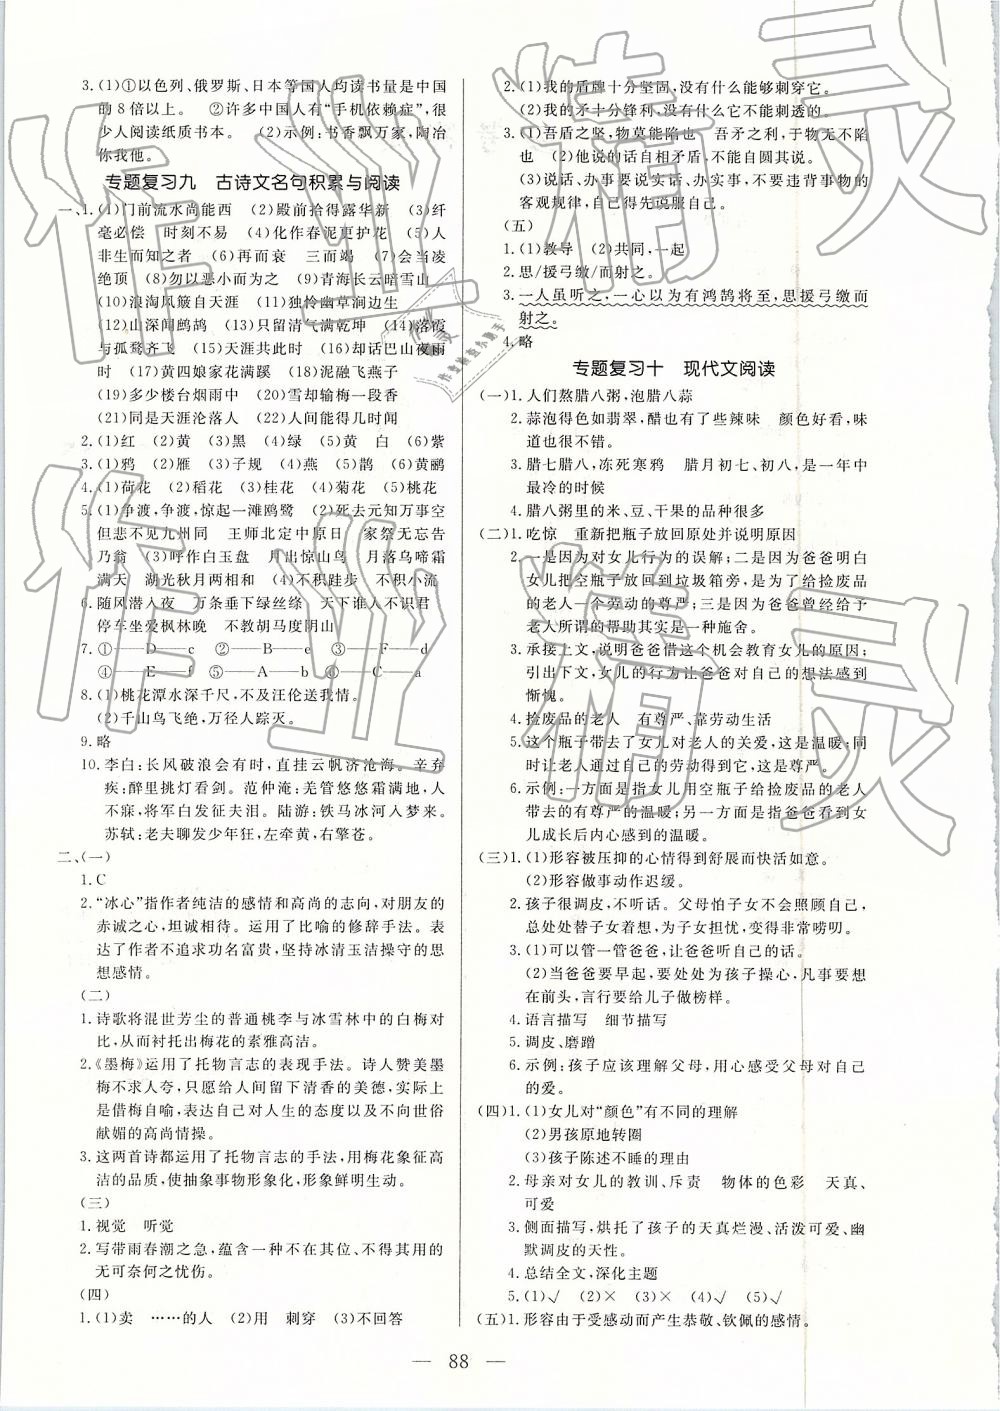 3. (1)①以色列、俄罗斯、日本等国人均读书量是中国
的8倍以上。 ②许多中国人有“手机依赖症”,很
少人阅读纸质书本。 (2)示例:书香飘万家,陶冶
你我他。
专题复习九 古诗文名句积累与阅读
一、1. (1)门前流水尚能西 (2)殿前拾得露华新 (3)纤
毫必偿 时刻不易 (4)化作春泥更护花 (5)人
非生而知之者 (6)再而衰 三而竭 (7)会当凌
绝顶 (8)勿以恶小而为之 (9)青海长云暗雪山
(10)浪淘风簸自天涯 (11)独怜幽草涧边生
(12)山深闻鹧鸪 (13)只留清气满乾坤 (14)落霞
与孤鹜齐飞 (15)天涯共此时 (16)却话巴山夜雨
时 (17)黄四娘家花满蹊 (18)泥融飞燕子
(19)多少楼台烟雨中 (20)雪却输梅一段香
(21)同是天涯沦落人 (22)人间能得几时闻
2. (1)红 (2)黄 (3)黑 (4)绿 (5)黄 白 (6)紫
3. (1)鸦 (2)雁 (3)子规 (4)燕 (5)鹊 (6)黄鹂
4. (1)荷花 (2)稻花 (3)桂花 (4)菊花 (5)桃花
5. (1)争渡,争渡,惊起一滩鸥鹭 (2)死去元知万事空
但悲不见九州同 王师北定中原日 家祭无忘告
乃翁 (3)呼作白玉盘 山月惊山鸟 月落乌啼霜
满天 湖光秋月两相和 (4)不积跬步 不积小流
6. 随风潜入夜 万条垂下绿丝绦 天下谁人不识君
停车坐爱枫林晚 不教胡马度阴山
7. ①——D——c ②——B——b ③——F——d
④——E——f ⑤——A——e ⑥——C——a
8. (1)桃花潭水深千尺,不及汪伦送我情。
(2)千山鸟飞绝,万径人踪灭。
9. 略
10. 李白:长风破浪会有时,直挂云帆济沧海。辛弃
疾:醉里挑灯看剑。范仲淹:羌管悠悠霜满地,人
不寐,将军白发征夫泪。陆游:铁马冰河入梦来。
苏轼:老夫聊发少年狂,左牵黄,右擎苍。
二、(一)
1. C
2. “冰心”指作者纯洁的感情和高尚的志向,对朋友的
赤诚之心,坦诚相待。运用了比喻的修辞手法。表
达了作者不追求功名富贵,坚持冰清玉洁操守的思
想感情。
(二)
1. 诗歌将混世芳尘的普通桃李与冰雪林中的白梅对
比,从而衬托出梅花的素雅高洁。
2. 《墨梅》运用了托物言志的表现手法。诗人赞美墨
梅不求人夸,只愿给人间留下清香的美德,实际上
是借梅自喻,表达自己对人生的态度以及不向世俗
献媚的高尚情操。
3. 这两首诗都运用了托物言志的手法,用梅花象征高
洁的品质,使抽象事物形象化,形象鲜明生动。
(三)
1. 视觉 听觉
2. 写带雨春潮之急,蕴含一种不在其位、不得其用的
无可奈何之忧伤。
(四)
1. (1)卖 ……的人 (2)用 刺穿 (3)不回答
2. (1)我的盾牌十分坚固,没有什么能够刺穿它。
(2)我的矛十分锋利,没有什么不能刺透的。
3. (1)吾盾之坚,物莫能陷也 吾矛之利,于物无不陷
也 (2)他说的话自相矛盾,不能自圆其说。
(3)说话办事要说实话、办实事,不要违背事物的
客观规律,自己得先说服自己。
(五)
1. (1)教导 (2)共同,一起
2. 思/援弓缴/而射之。
3. 一人虽听之,一心以为有鸿鹄将至,思援弓缴而
射之。
4. 略
专题复习十 现代文阅读
(一)1. 人们熬腊八粥,泡腊八蒜
2. 蒜泡得色如翡翠,醋也有了些辣味 颜色好看,味
道也很不错。
3. 腊七腊八,冻死寒鸦 腊月初七、初八,是一年中
最冷的时候
4. 腊八粥里的米、豆、干果的品种很多
(二)1. 吃惊 重新把瓶子放回原处并说明原因
2. 一是因为对女儿行为的误解;二是因为爸爸明白
女儿把空瓶子放回到垃圾箱旁,是为了给捡废品
的老人一个劳动的尊严;三是因为爸爸曾经给予
老人所谓的帮助其实是一种施舍。
3. 承接上文,说明爸爸借这个机会教育女儿的原因;
引出下文,女儿的行为让爸爸对自己的想法感到
惭愧。
4. 捡废品的老人 有尊严、靠劳动生活
5. 这个瓶子带去了女儿对老人的关爱,这是温暖;同
时还能让老人通过自己的劳动得到它,这是尊严。
6. 示例:一方面是指女儿用空瓶子给捡废品的老人
带去的有尊严的温暖,另一方面是指爸爸看到女
儿成长后内心感到的温暖。
(三)1. (1)形容被压抑的心情得到舒展而快活如意。
(2)形容做事动作迟缓。
2. 孩子很调皮,不听话。父母怕子女不会照顾自己,
总处处为子女着想,为子女担忧,变得非常唠叨。
3. (1)可以管一管爸爸,让爸爸听自己的话。
(2)当爸爸要早起,要处处为孩子操心,凡事要想
在前头,言行要给儿子做榜样。
4. 语言描写 细节描写
5. 调皮、磨蹭
6. 示例:孩子应该理解父母,用心感受父母对自己
的爱。
(四)1. (1)女儿对“颜色”有不同的理解
(2)男孩原地转圈
(3)孩子陈述不睡的理由
2. 母亲对女儿的教训、斥责 物体的色彩 天真、
可爱
3. 侧面描写,烘托了孩子的天真烂漫、活泼可爱、幽
默调皮的天性。
4. 总结全文,深化主题
5. (1)√ (2)× (3)× (4)√ (5)√
(五)1. 形容由于受感动而产生恭敬、钦佩的感情。
— 88 —
作业精灵
作业精灵